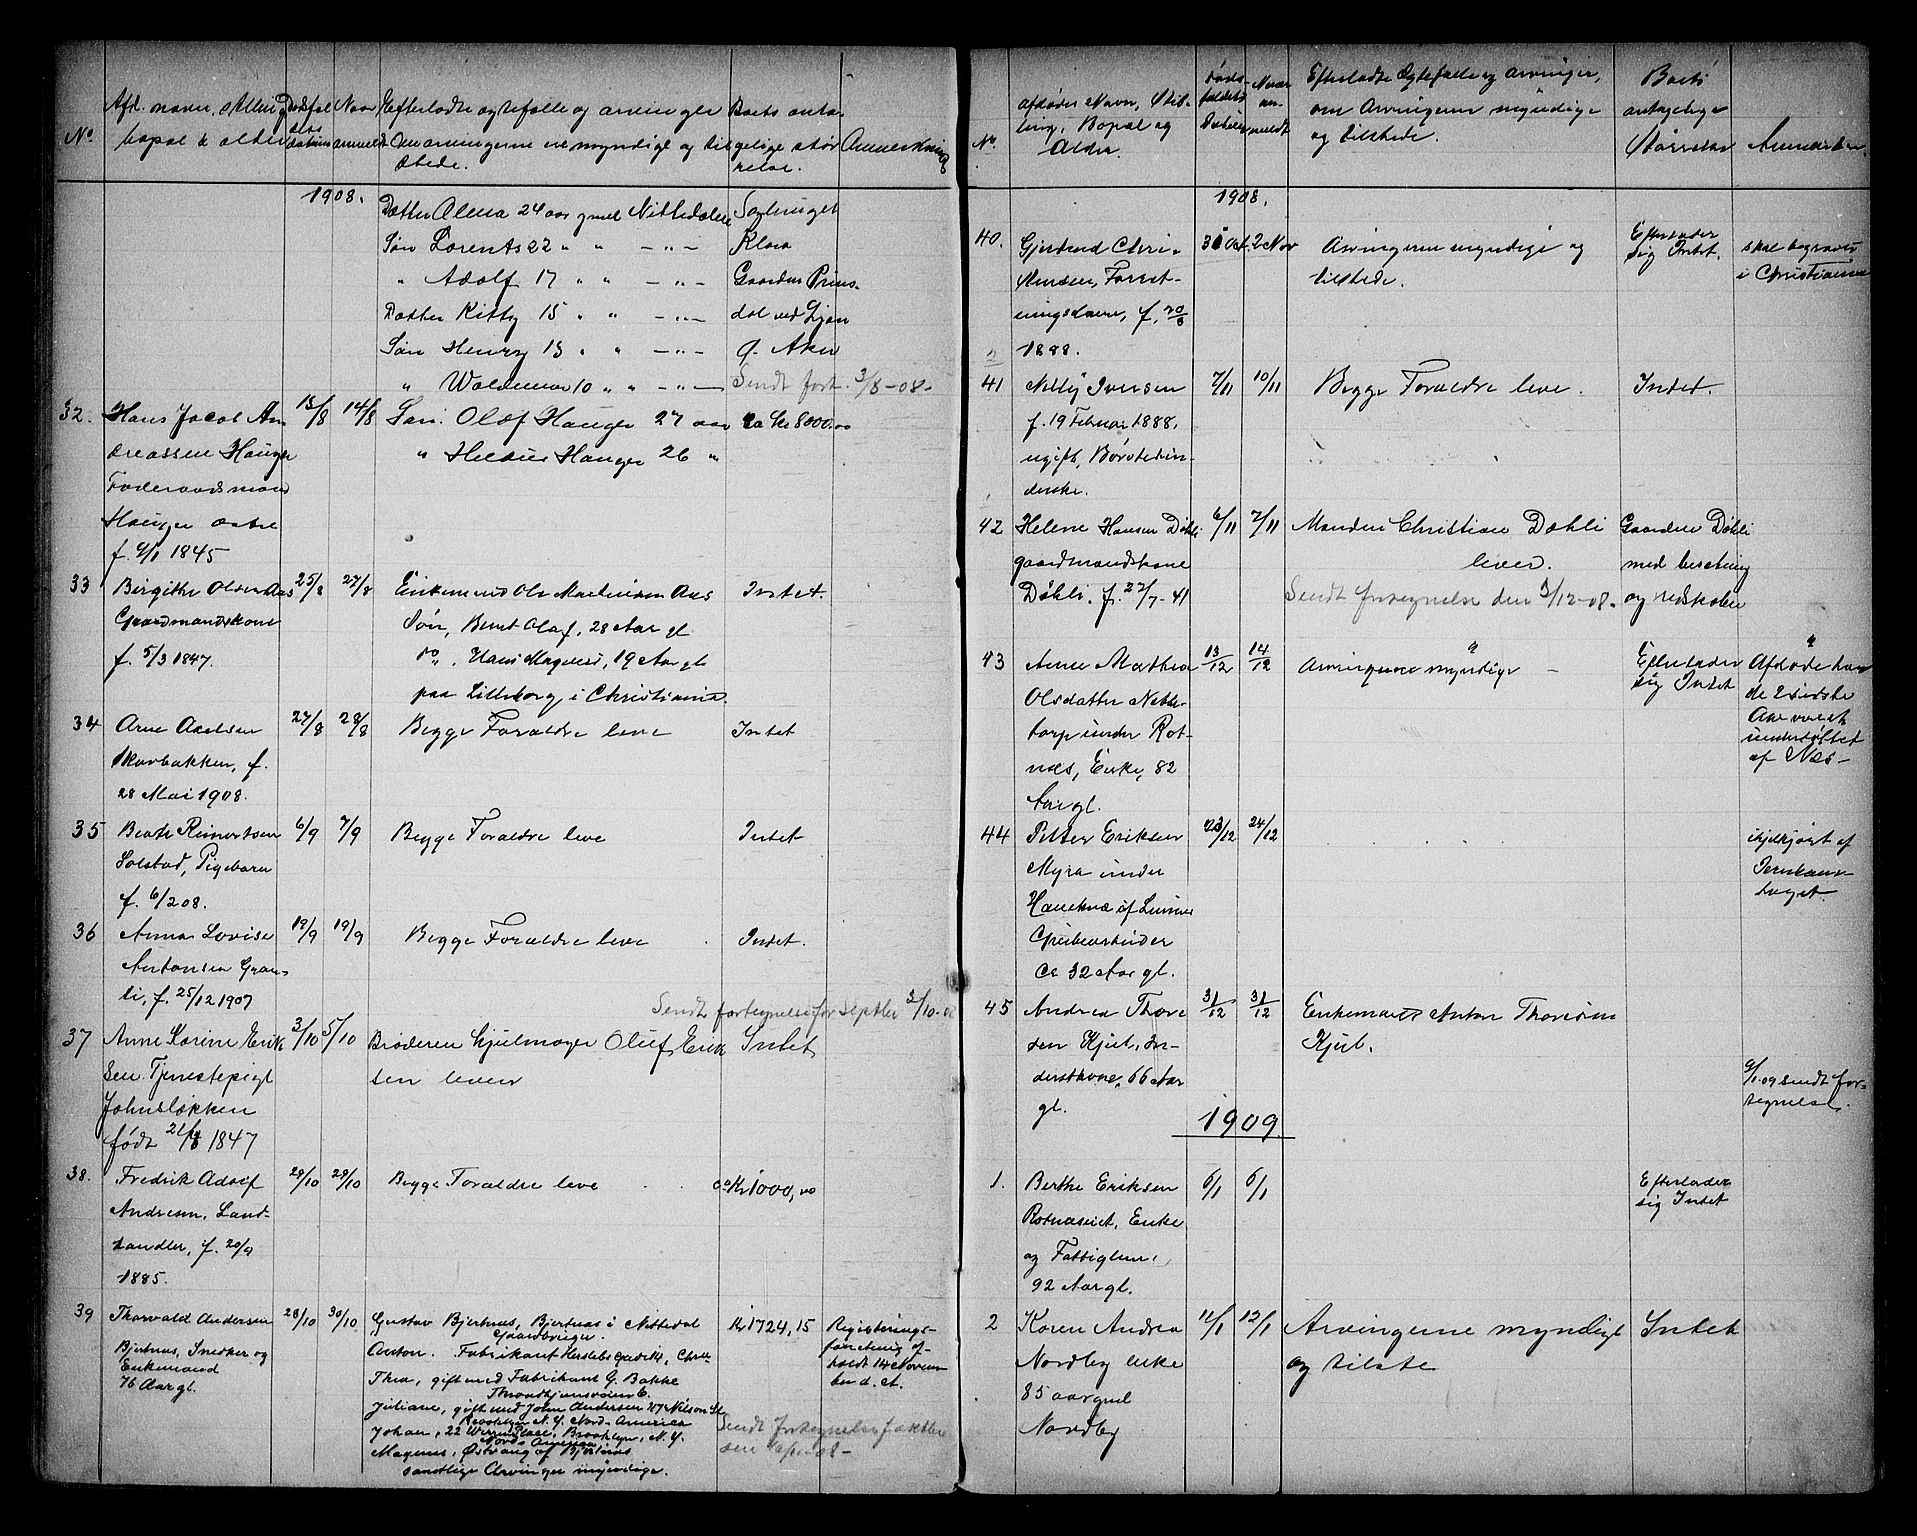 No
Afd. navn, stilling
bopal & alder
Dødsfal
dets
datum
Naar
anmeldt
Efterladte ægtefælle og arvinger
Om arvingerne ere myndige og til
stede.
Boets anta
gelige stør
relse.
Anmerkning
1908.
Datter Olena 24 aar gml Nittedalen
Søn Lorents 22 " " — " —
" Adolf 17 " " — " —
Datter Kitty 15 " " — " —
Søn Henry 13 " " — " —
" Waldemar 10 " " — " —
Sagbruget
Klara
Gaarden Prins-
dal ved Ljan
Aker
Sendt fort. 3/8-08-
32. Hans Jacob An
dreassen Hauger
Føderaadsmand
Hauger østre
f. 9/1 1845
13/8 14/8 Søn: Olaf Hauger 27 aar
" Hauger 26 "
ca Kr 8000.00
33 Birgithe Olsen Aas
Gaardmandskone
f. 5/3 1847.
25/8 27/8 Enkemand Ole Martinsen Aas
Søn, Bernt Olaf, 28 Aar gl
do, Hans Magnus, 19 Aar gl
paa Lilleborg i Christiania.
Intet.
34 Arne Axelsen
Skovbakken, f.
28 Mai 1908.
27/8 28/8 Begge Forældre leve Intet
35 Beate Reinertsen
Solstad, Pigebarn
f. 6/2 08.
6/9 7/9 Begge Forældre leve Intet
36 Anna Lovise
Antonsen Gran-
li, f. 25/12 1907
19/9 19/9 Begge Forældre leve Intet.
Sendt fortegnelse for Septbr 2/10-08
37 Anne Karine Erik
sen. Tjenestepige
Johnsløkken
født 21/8 1847
3/10 5/10 Broderen Hjulmager Oluf Erik
sen lever
Intet
38. Fredrik Adolf
Andresen, Land-
handler, f. 20/9
1885.
29/10 29/10 Begge Forældre leve ca Kr 1000,00
39 Thorvald Andersen
Bjertnes, Snedker og
Enkemand
76 Aar gl.
28/10 30/10 Gustav Bjertnes, Bjertnes i Nittedal
Gaardbruger.
Anton. Fabrikant
Thea, gift med Fabrikant G. Bakke
Throndhjemsveien 6.
Juliane, gift med John Andersen 117 Nelson St.
Brooklyn N.Y. Nord-America
Johan, 22 Brooklyn, N.Y.
Nord-America
Magnus, Østvang af Bjertnes
samtlige Arvinger myndige.
Kr 1724,15
Registrerings-
forretning af-
holdt 14 Novem
ber d. A.
Sendt Fortegnelse for oktbr
den
No.
Afdødes Navn, Stil-
ling, Bopæl og
Alder.
Døds-
faldets
Datum
Naar
an-
meldt
Efterladte Ægtefælle og Arvinger,
om Arvingerne myndige
og tilstede.
Boets
antagelige
Størrelse
Anmerkn.
1908.
40. Gjertrud Chri-
stensen, Forret-
ningsdame, f. 20/6
1888.
31 Oct. 2 Nov Arvingerne myndige og
tilstede.
Efterlader
sig Intet.
skal begraves
i Christiania
41 Nelly Iversen
f. 19 Februar 1888,
ugift, Børstebin-
derske.
7/11 10/11 Begge Forældre leve. Intet.
42 Helene Hansen Døhli
gaardmandskone
Døhli. f. 27/7-41
6/11 7/11 Manden Christian Døhli
lever.
Sendt fortegnelse den 3/12-08.
Gaarden Døhli
med besetning
og redskaber
43 Anne Mathea
Olsdatter
under Rot-
næs, Enke, 82
Aar gl.
13/12 14/12 Arvingerne myndige —
Efterlader
sig Intet
Afdøde hav
de sidste
Aar været
understøttet
af Næs-
44 Petter Eriksen
Myra under
af Lunner
Grubearbeider
ca 32 Aar gl.
23/12 24/12
ihjelkjørt af
Jernbane
toget.
45 Andrea Thore
sen Kjul, In-
derstkone, 66 Aar
gl.
31/12 31/12 Enkemand Anton Thoresen
Kjul.
9/1-09 sendt for-
tegnelse.
1909
1. Berthe Eriksen
Rotnæseiet, Enke
og Fattiglem,
92 Aar gl.
6/1 6/1
Efterlader
sig Intet
2 Karen Andrea
Nordby enke
85 aar gml
Nordby
11/1 12/1 Arvingerne myndige
og tilste
Intet